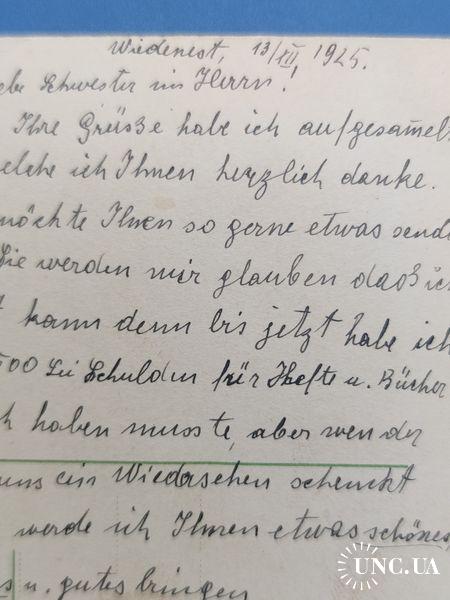 Wiedenest, 13/III 1925.
ebe Schwester im Herrn!
Ihre Grüsse habe ich aufgesamelt
elche ich Ihnen herzlich danke.
möchte Ihnen so gerne etwas send
Sie werden mir glauben daß ic
t kann denn bis jetzt habe ich
500 Lei Schulden für Hefte u. Bücher
h haben musste, aber wen der
uns ein Wiedersehen schenckt
werde ich Ihnen etwas schönes,
s u. gutes bringen
UNC.UA